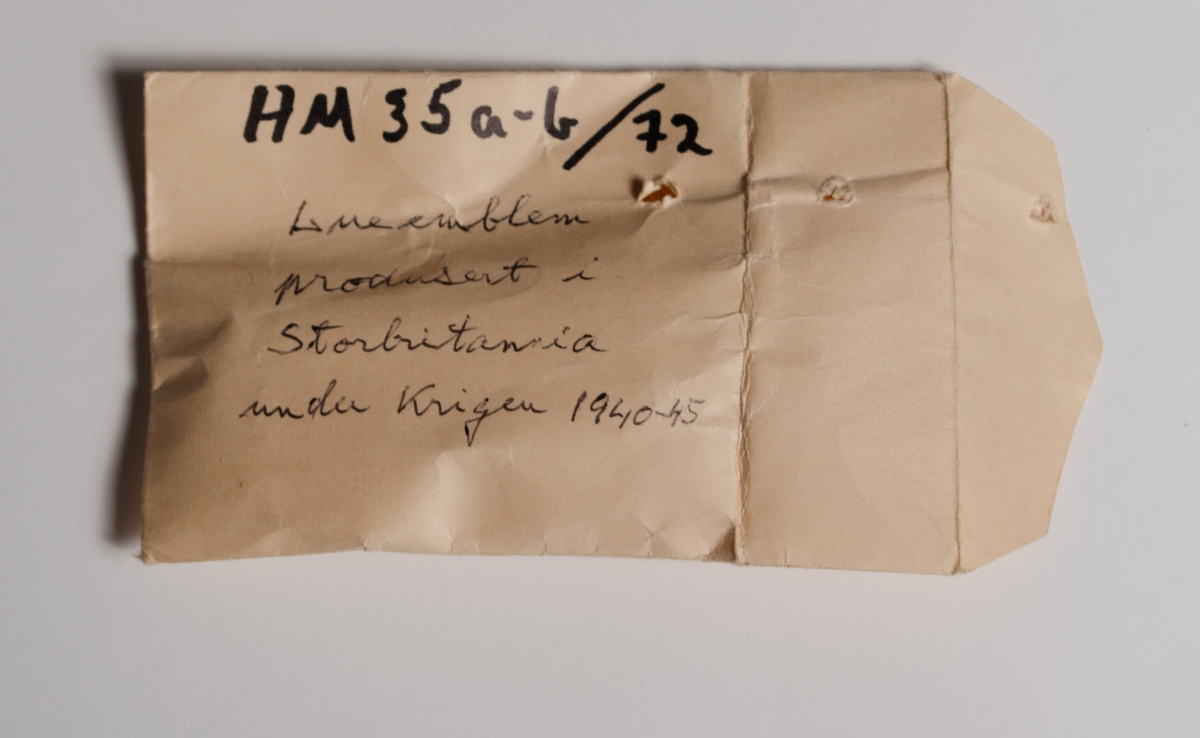 HM 35 a-b/72
Lueemblem
produsert i
Storbritannia
under Krigen 1940-45